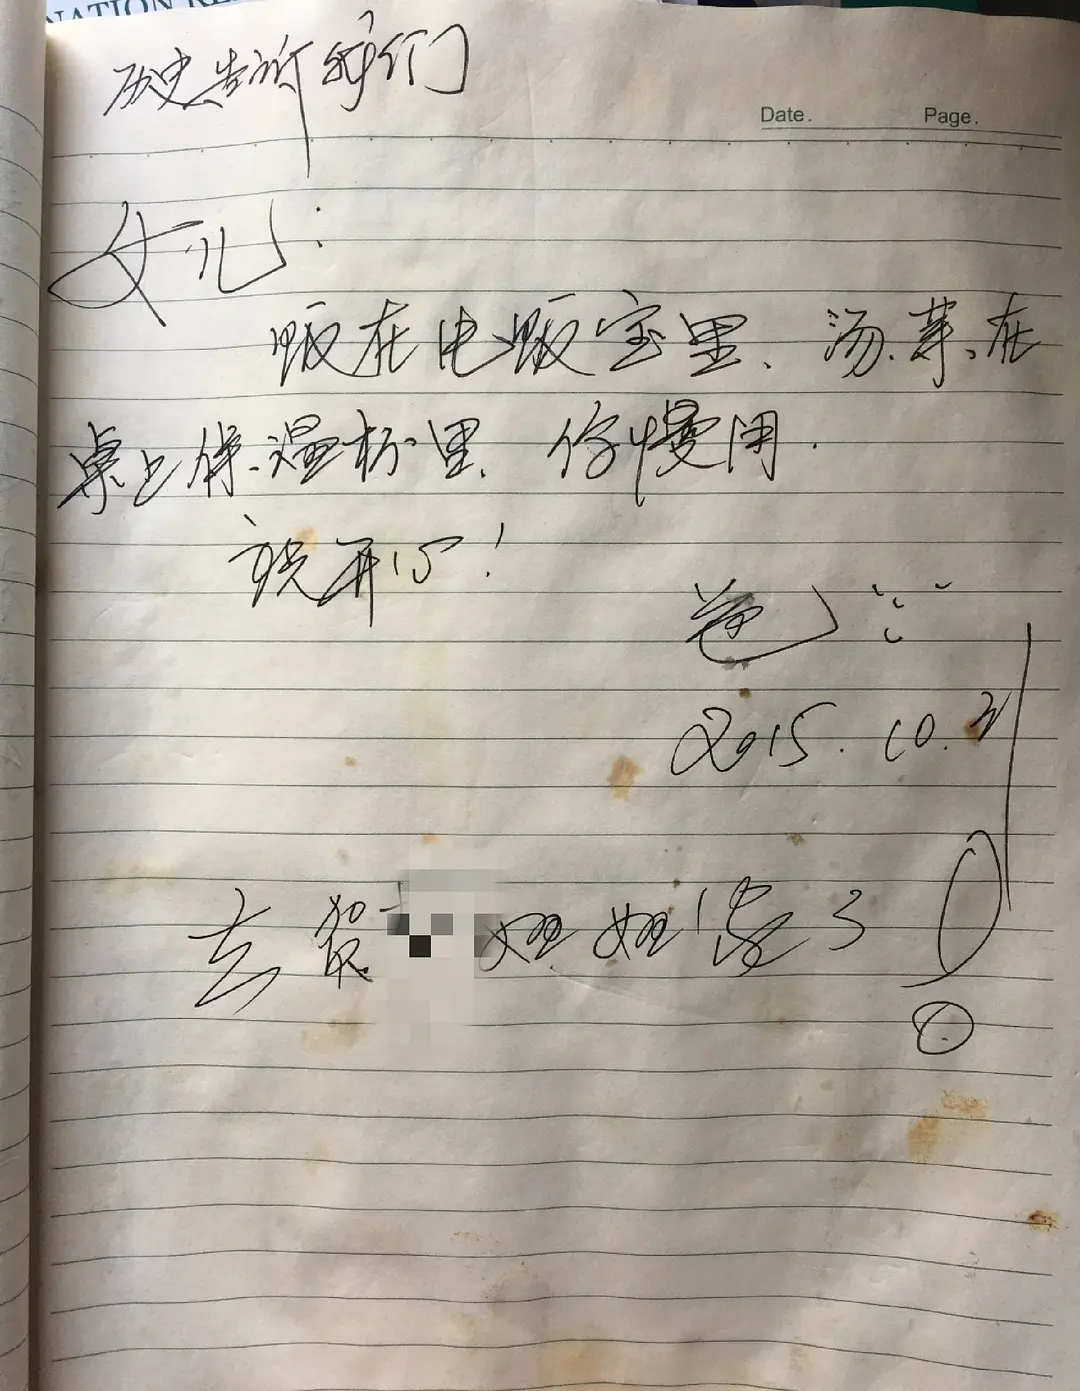 NATION RE
历史告诉我们
Date. Page.
女儿:
饭在电饭宝里、汤、菜、在
桌上保温杯里、你慢用.
祝开心!
爸
2015.10.
去贺 姐姐 了